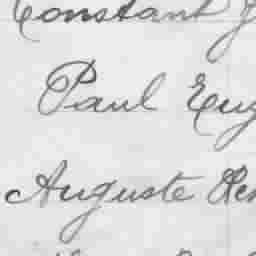 Constant
Paul Eug
Auguste